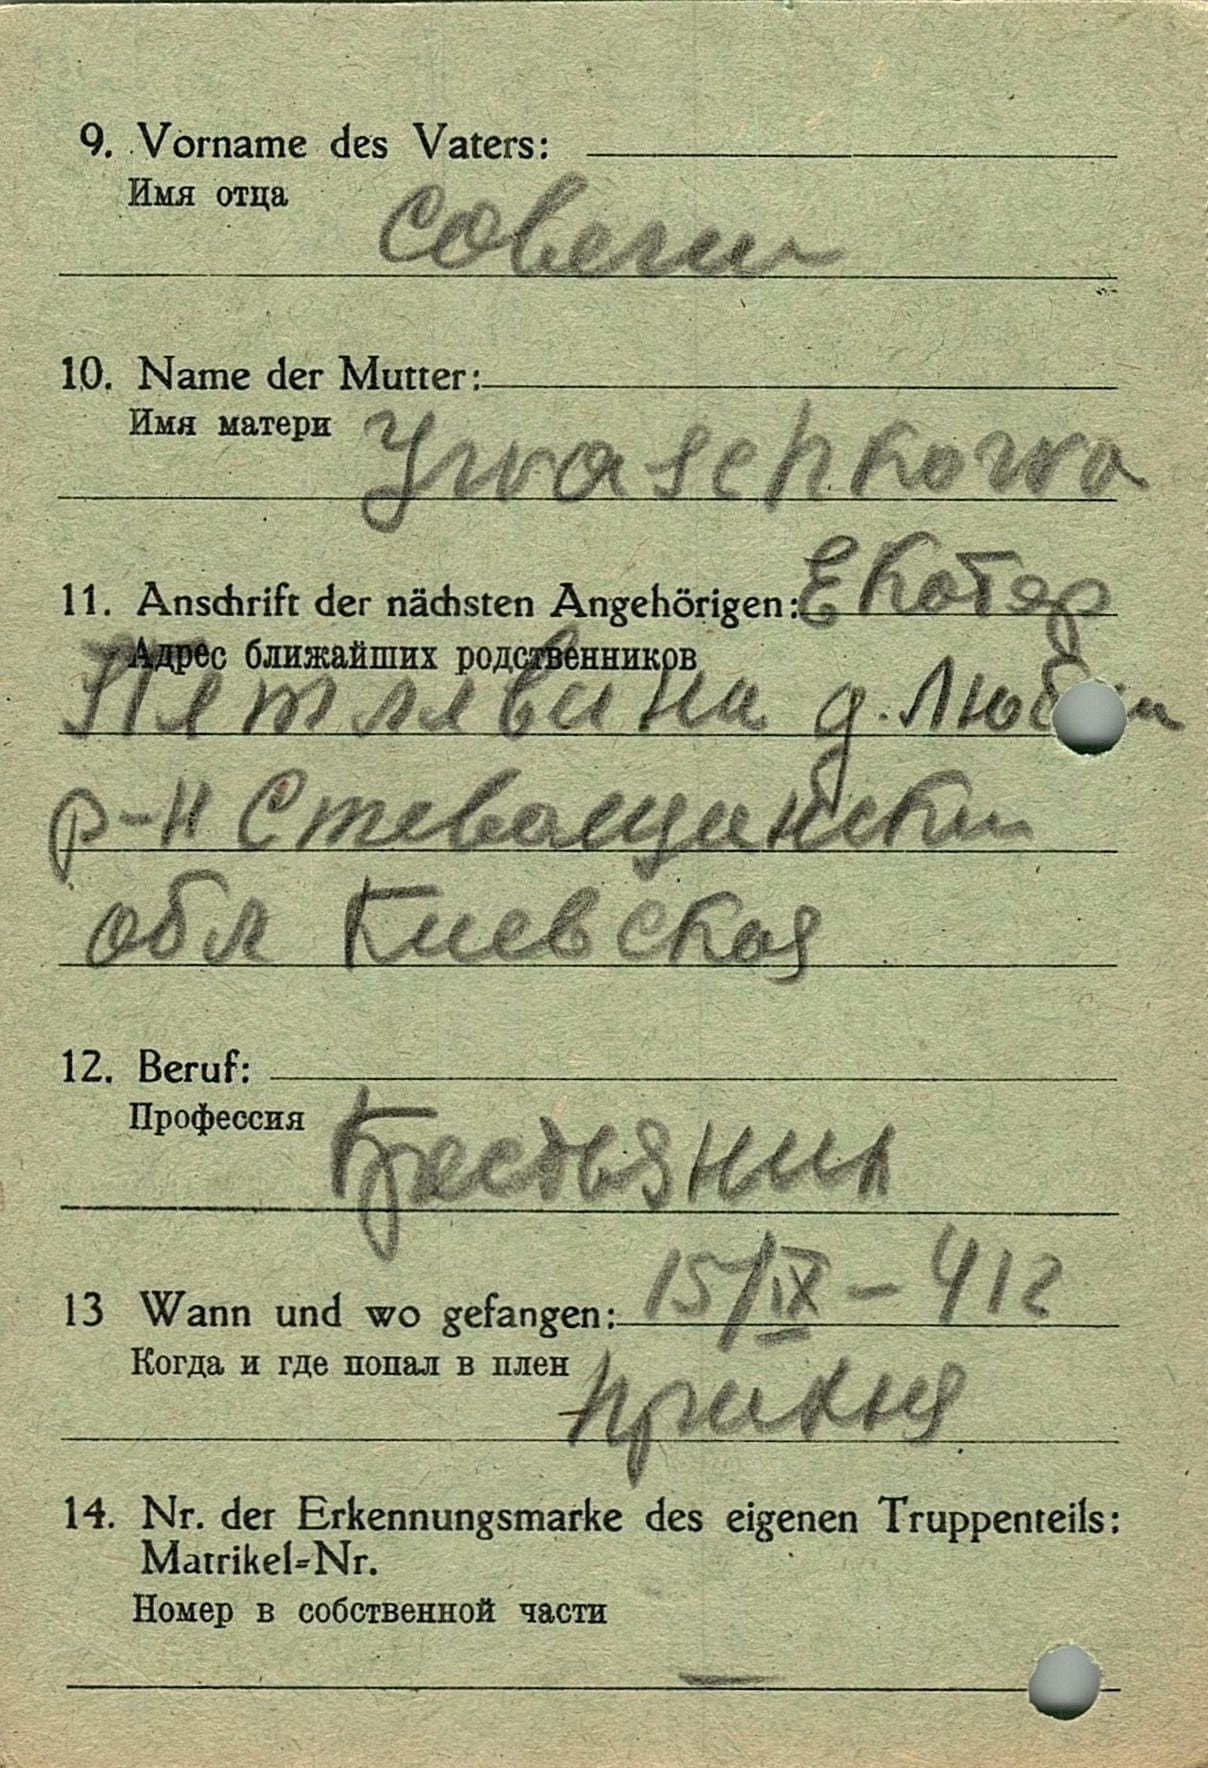 9. Vorname des Vaters:
Имя отца
Совети
10. Name der Mutter:
Имя матери
Jwaschkowa
11. Anschrift der nächsten Angehörigen: Екатер
Адрес ближайших родственников
д. Люб
р-н
обл Киевская
12. Beruf:
Профессия
Крестьянин
13 Wann und wo gefangen: 15/IX – 412
Когда и где попал в плен
14. Nr. der Erkennungsmarke des eigenen Truppenteils:
Matrikel=Nr.
Номер в собственной части
—